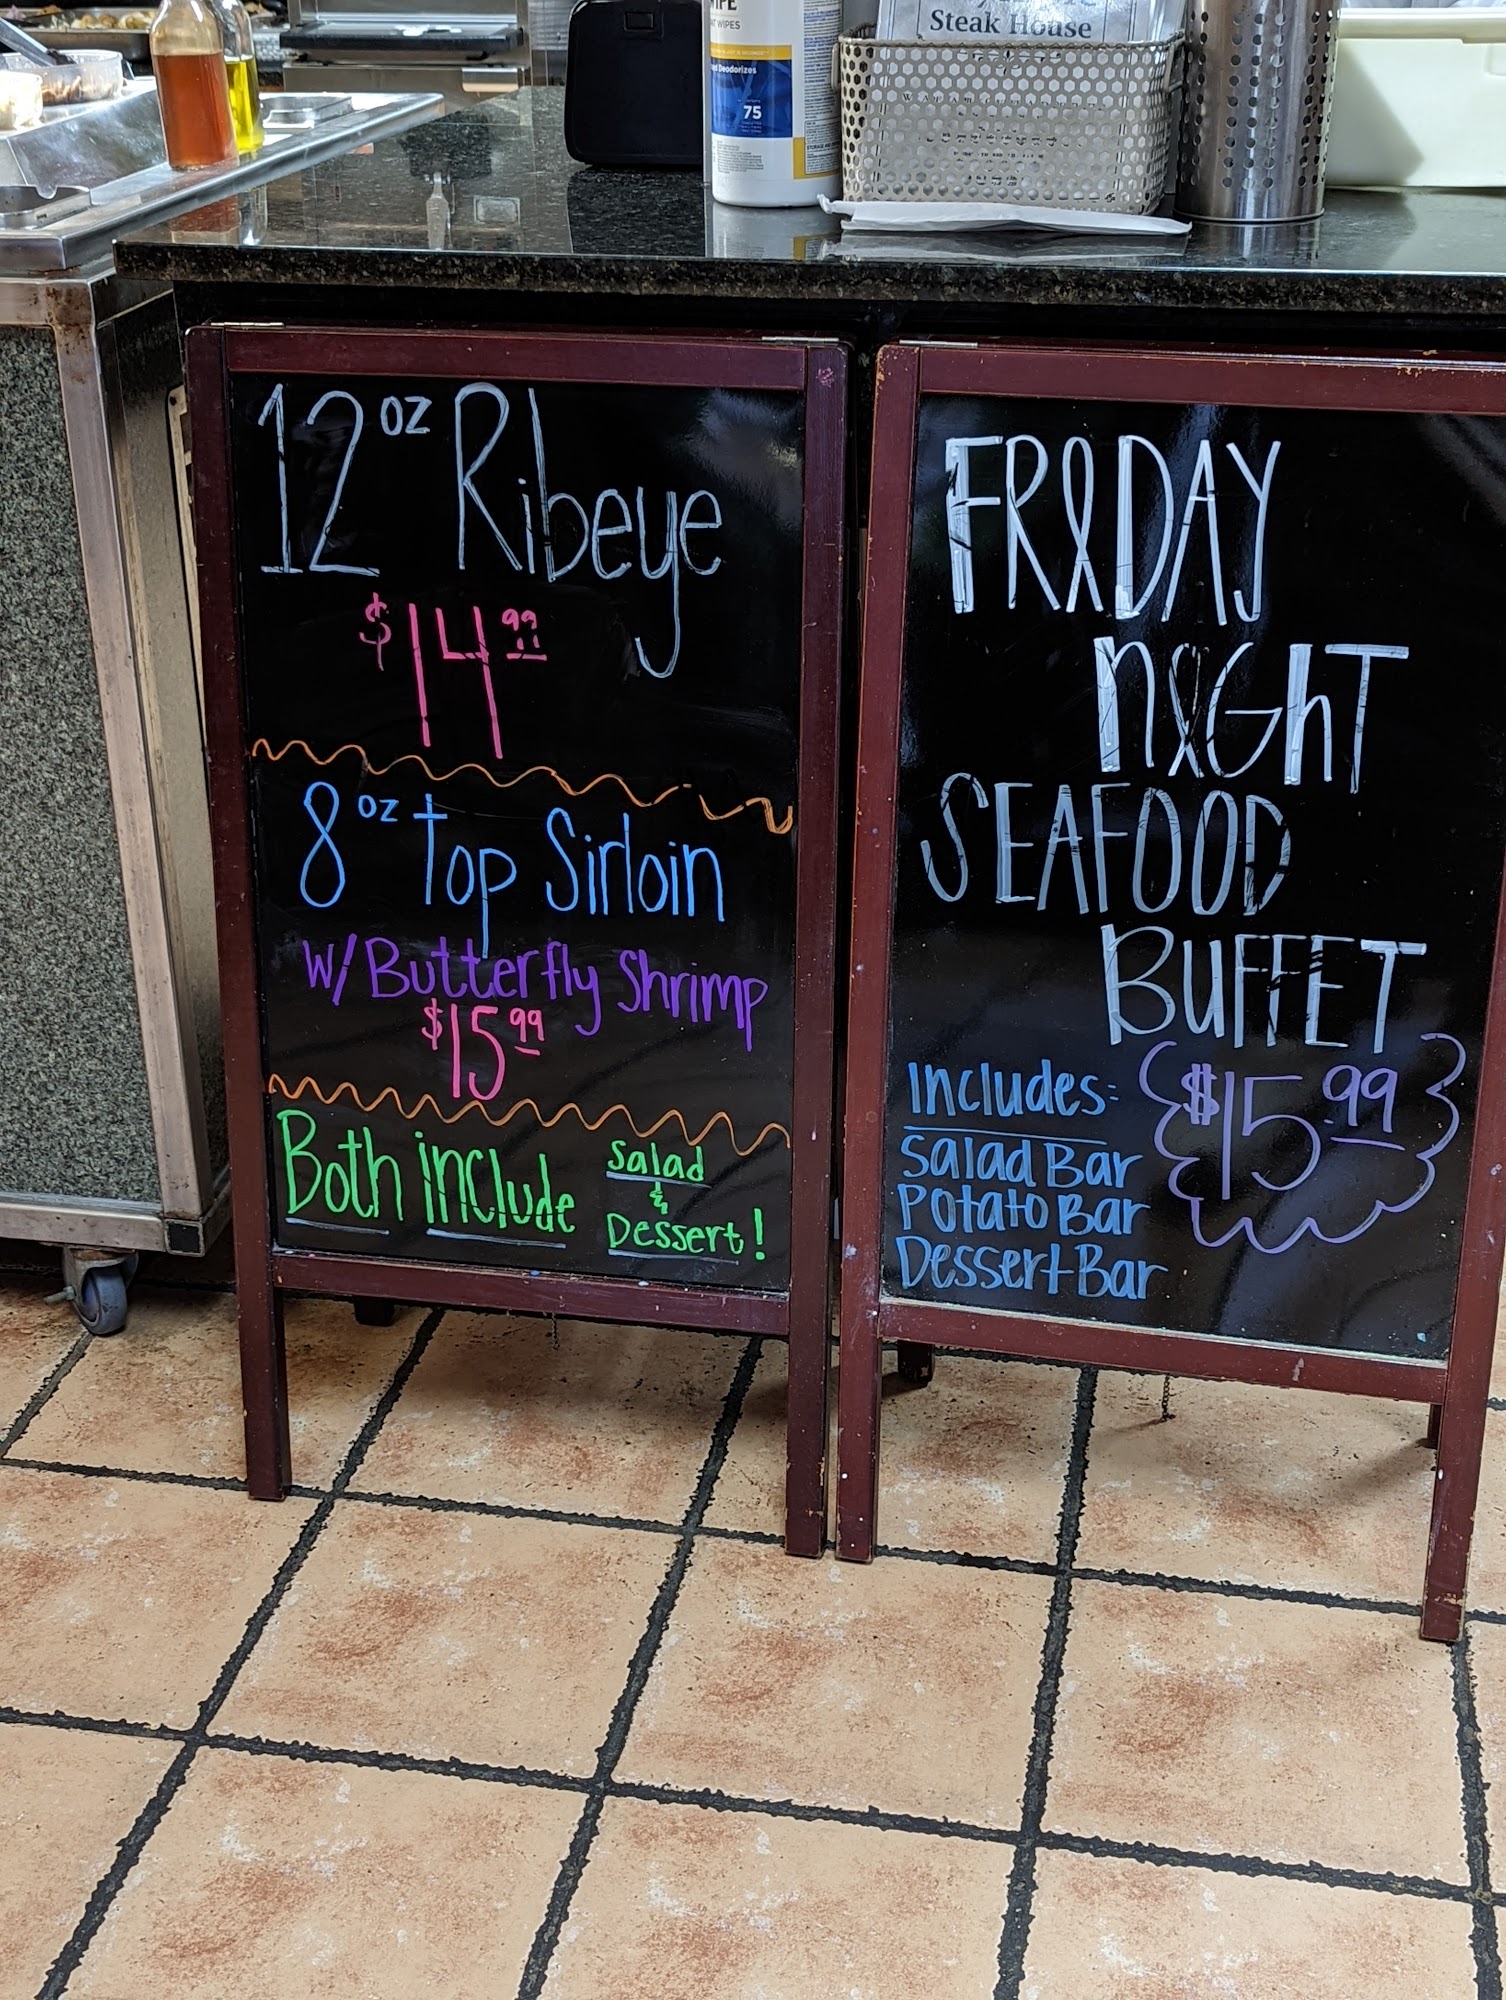 Steak House
WIPES
Deodorizes
75
12 oz Ribeye
$14.99
8 oz Top Sirloin
w/ Butterfly Shrimp
$15.99
Both include
Salad
&
Dessert!
FRIDAY
nIGhT
SEAFOOD
BUFFET
$15.99
Includes:
Salad Bar
Potato Bar
Dessert Bar